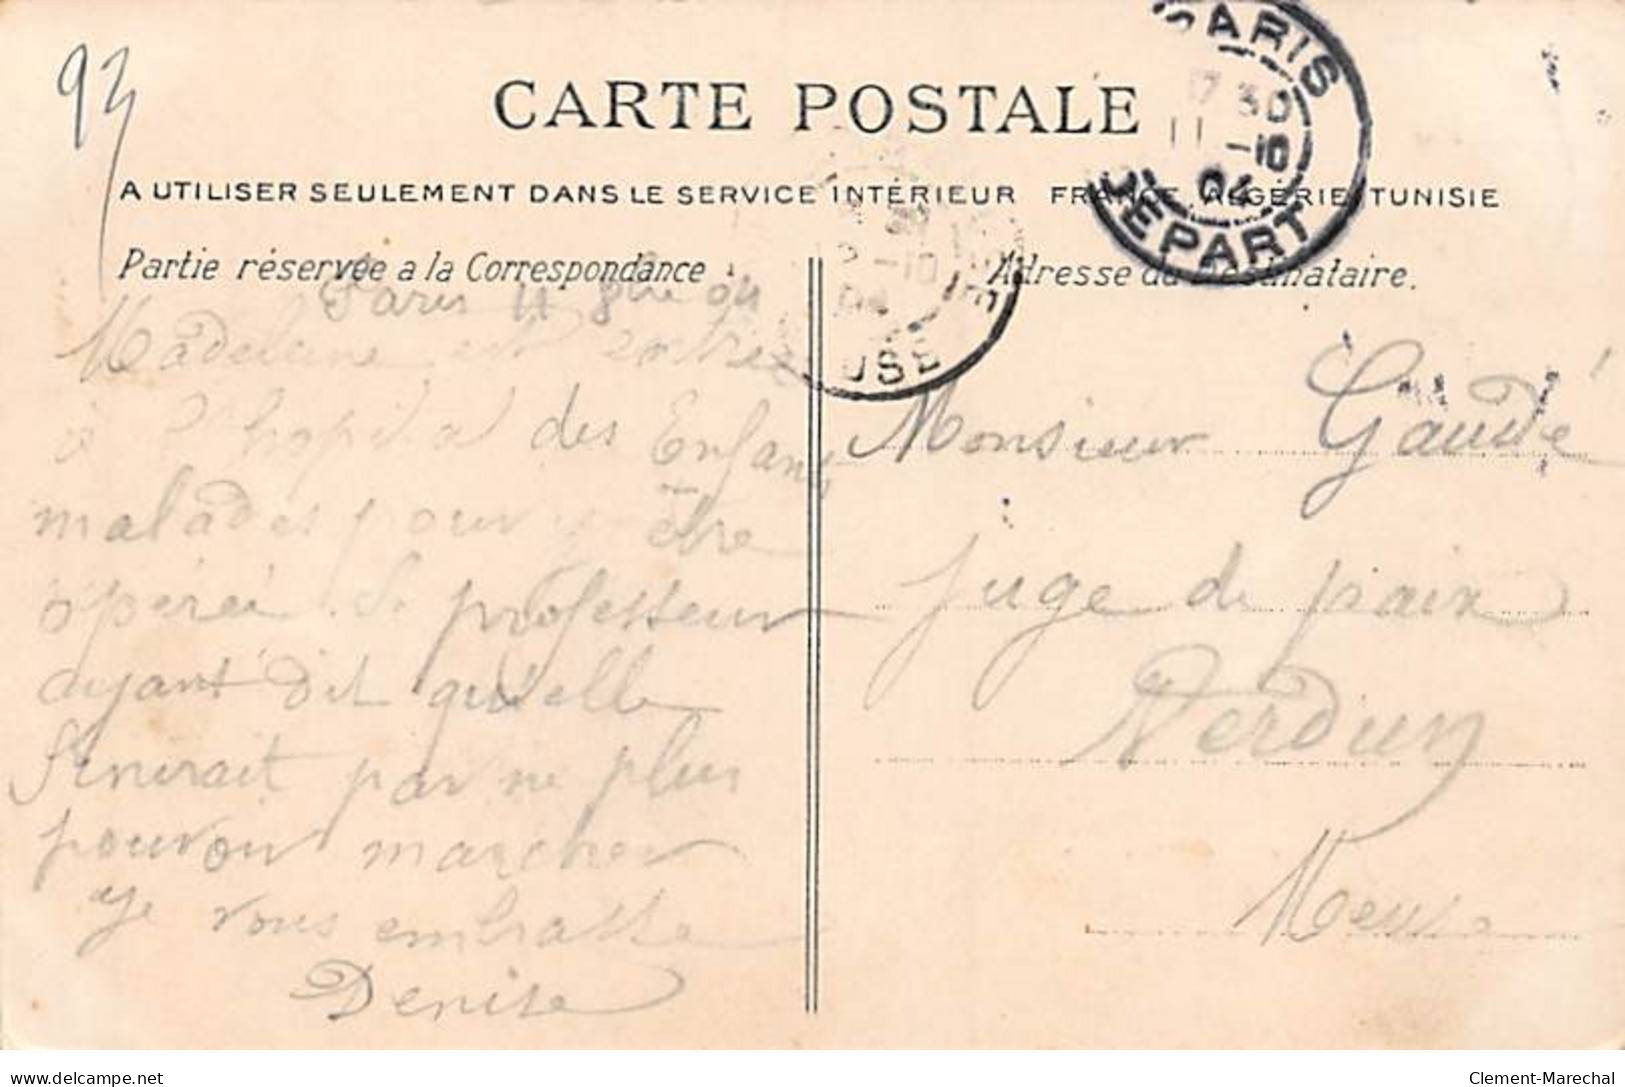 93
CARTE POSTALE
A UTILISER SEULEMENT DANS LE SERVICE INTÉRIEUR FRANCE, ALGÉRIE, TUNISIE
Partie réservée a la Correspondance
Adresse du Destinataire.
PARIS
17 30
11 -10
04
DEPART
-10
04
USE
Paris 11 8bre 04
Madeleine est entrée
à l'hopital des Enfants
malades pour être
opérée. Le professeur
ayant dit qu'elle
finirait par ne plus
pouvoir marcher
Je vous embrasse
Denise
Monsieur Gaudé
juge de paix
Verdun
Meuse
delcampe.net
Clement-Marechal